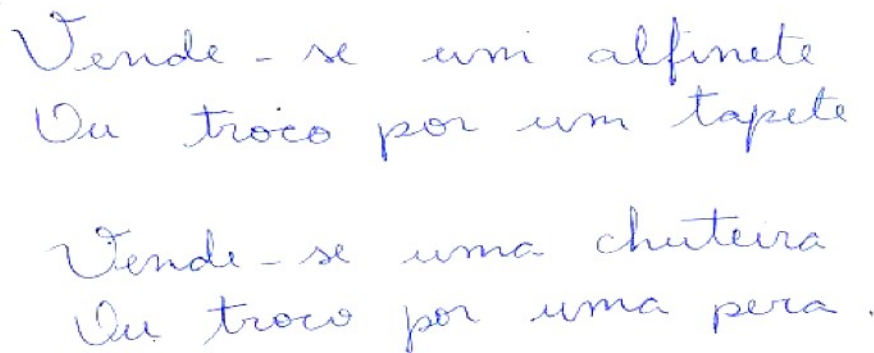 Vende-se um alfinete
Ou troco por um tapete
Vende-se uma chuteira
Ou troco por uma pera.